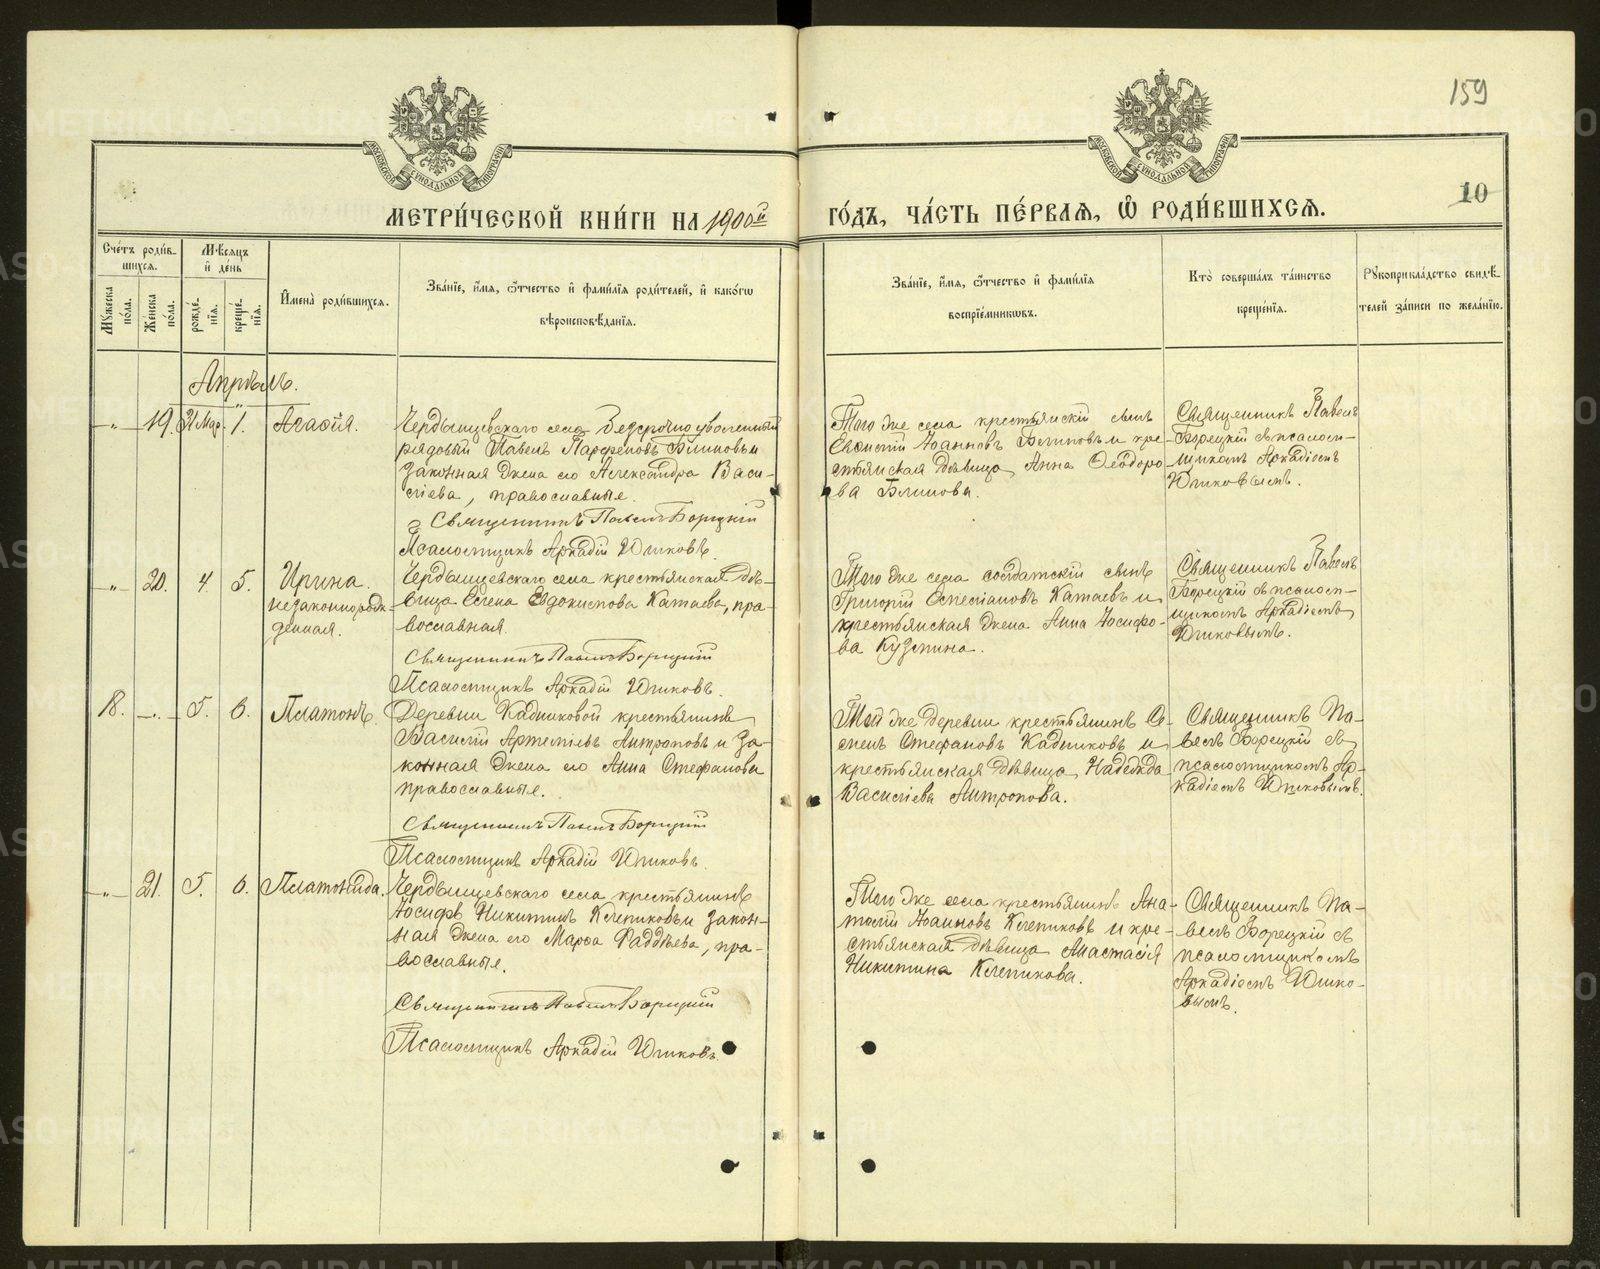 159
МОСКОВСКОЙ СѴНОДАЛЬНОЙ ТИПОГРАФІИ
МОСКОВСКОЙ СѴНОДАЛЬНОЙ ТИПОГРАФІИ
10
МЕТРИ́ЧЕСКОЙ КНИ́ГИ НА 1900й
ГО́ДЪ, ЧА́СТЬ ПЕ́РВАѦ, Ѽ РОДИ́ВШИХСѦ.
Сче́тъ роди́в-
шихсѧ.
Мѣ́сѧцъ
и҆ де́нь
Мꙋ́жеска
по́ла.
Же́нска
по́ла.
рожде́-
нїѧ.
креще́-
нїѧ.
И҆мена̀ роди́вшихсѧ.
Зва́нїе, и҆́мѧ, ѻ҆́тчество и҆ фами́лїѧ роди́телей, и҆ како́гѡ
вѣроисповѣ́данїѧ.
Зва́нїе, и҆́мѧ, ѻ҆́тчество и҆ фами́лїѧ
воспрїе́мникѡвъ.
Кто̀ соверша́лъ та́инство
креще́нїѧ.
Рꙋкоприкла́дство свидѣ́-
телей за́писи по жела́нїю.
Апрѣль.
-„- 19. 31 Мар. 1. Агафія.
Чердынцевскаго села безсрочно уволенный
рядовый Павелъ Парфеновъ Блиновъ и
законная жена его Александра Васи-
ліева, православные.
Священникъ Павелъ Борецкій
Псаломщикъ Аркадій Юшковъ.
Того же села крестьянскій сынъ
Іоанновъ Блиновъ и кре-
стьянская дѣвица Анна Ѳеодоро-
ва Блинова.
Священникъ Павелъ
Борецкій съ псалом-
щикомъ Аркадіемъ
Юшковымъ.
-„- 20. 4 5. Ирина.
незаконнорож-
денная.
Чердынцевскаго села крестьянская дѣ-
вица Елена Евдокимова Катаева, пра-
вославная.
Священникъ Павелъ Борецкій
Псаломщикъ Аркадій Юшковъ.
Того же села солдатскій сынъ
Григорій Катаевъ и
крестьянская жена Анна Іосифо-
ва Кузмина.
Священникъ Павелъ
Борецкій съ псалом-
щикомъ Аркадіемъ
Юшковымъ.
18. -„- 5. 6. Платонъ.
Деревни Кадниковой крестьянинъ
Василій Артеміевъ Антроповъ и за-
конная жена его Анна Стефанова
православные.
Священникъ Павелъ Борецкій
Псаломщикъ Аркадій Юшковъ.
Той же деревни крестьянинъ Се-
менъ Стефановъ Кадниковъ и
крестьянская дѣвица Надежда
Василіева Антропова.
Священникъ Па-
велъ Борецкій съ
псаломщикомъ Ар-
кадіемъ Юшковымъ.
-„- 21. 5. 6. Платонида.
Чердынцевскаго села крестьянинъ
Іосифъ Никитинъ Клепиковъ и закон-
ная жена его Марѳа Фаддѣева, пра-
вославные.
Священникъ Павелъ Борецкій
Псаломщикъ Аркадій Юшковъ.
Того же села крестьянинъ Ана-
толій Іоанновъ Клепиковъ и кре-
стьянская дѣвица Анастасія
Никитина Клепикова.
Священникъ Па-
велъ Борецкій съ
псаломщикомъ
Аркадіемъ Юшко-
вымъ.
METRIKI.GASO-URAL.RU